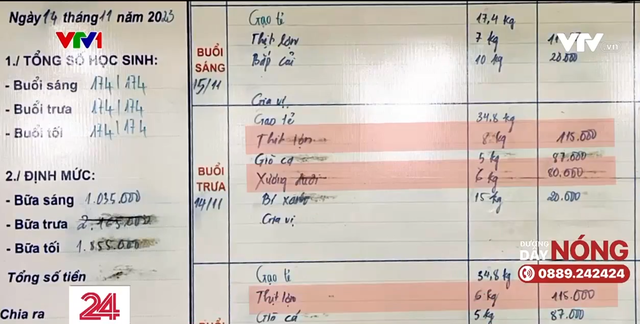 VTV1
VTV.vn
Ngày 14 tháng 11 năm 2023
1./ TỔNG SỐ HỌC SINH:
- Buổi sáng 174 / 174
- Buổi trưa 174 / 174
- Buổi tối 174 / 174
2./ ĐỊNH MỨC:
- Bữa sáng 1.035.000
- Bữa trưa 2.165.000
- Bữa tối 1.855.000
Tổng số tiền
Chia ra
BUỔI SÁNG
15/11
Gạo tẻ 17,4 kg
Thịt lợn 7 kg
Bắp cải 10 kg 20.000
Gia vị
BUỔI TRƯA
14/11
Gạo tẻ 34,8 kg
Thịt lợn 8 kg 115.000
Giò cá 5 kg 87.000
Xương đuôi 6 kg 80.000
Bí xanh 15 kg 20.000
Gia vị
BUỔI
Gạo tẻ 34,8 kg
Thịt lợn 6 kg 115.000
Giò cá 5 kg 87.000
24
ĐƯỜNG DÂY NÓNG
0889.242424